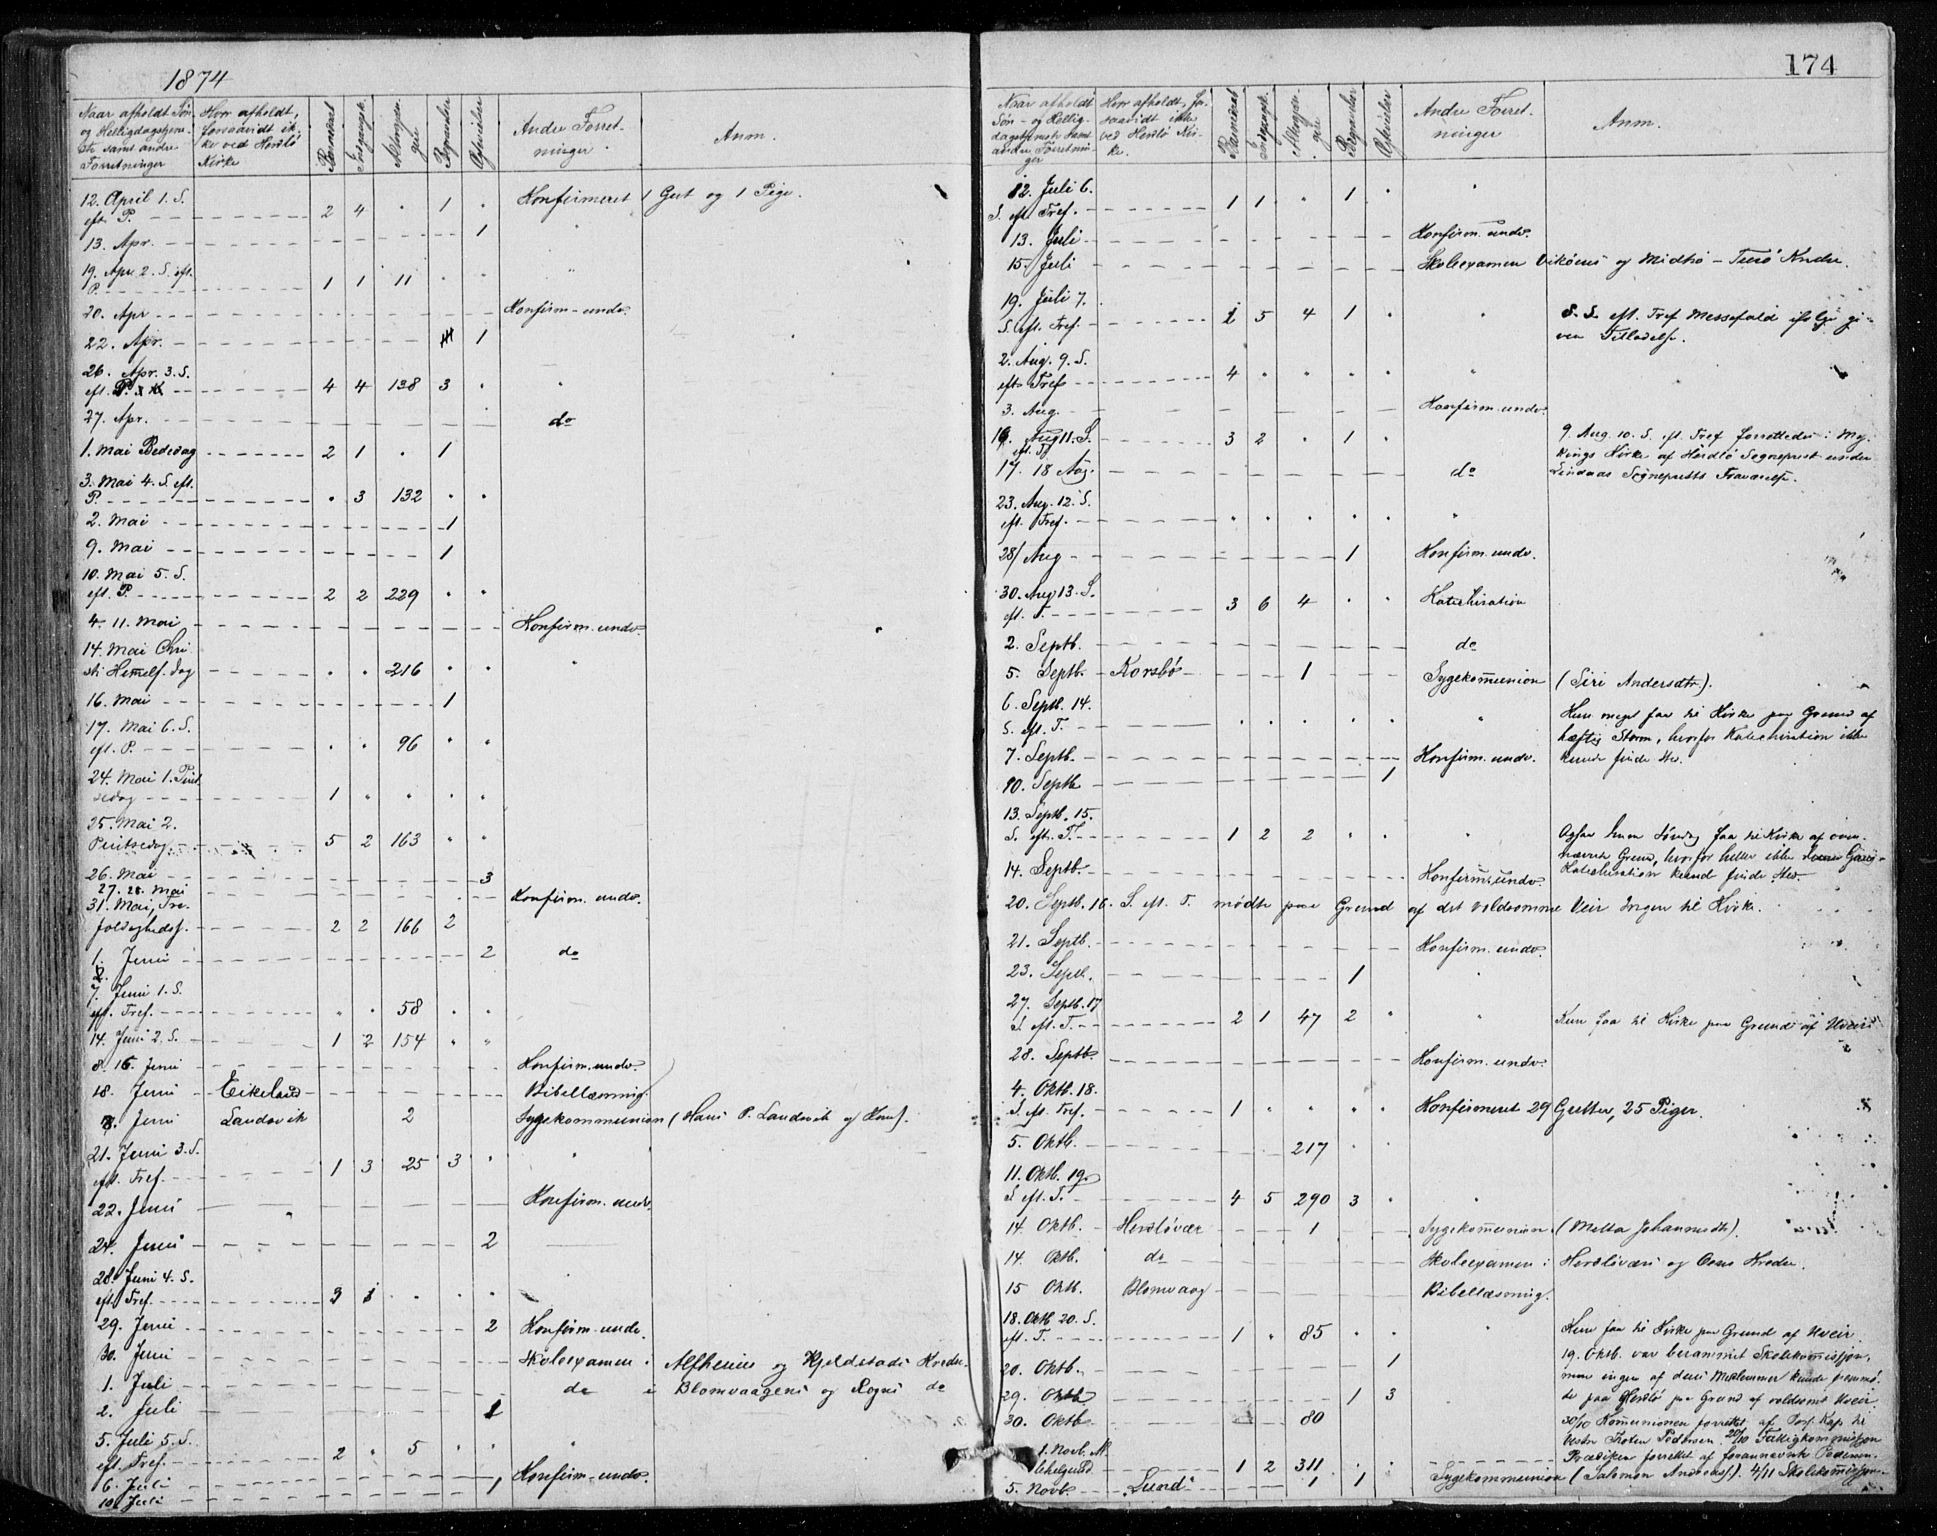 1874
Naar afholdt Søn
og Helligdagstjene
ste samt andre
Forretninger
Hvor afholdt,
forsaavidt ik
ke ved Herdlø
Kirke
Barnedaab
Altergjæ
ster
Begravelser
Andre Forret-
ninger
Anm.
12. April 1. S.
eft. P. 2 4 " 1 " Konfirmeret 1 Gut og 1 Pige.
13. Apr. 1 "
19. Apr. 2. S. eft.
P. 1 1 11 " " "
20. Apr Konfirm-undv.
22. Apr. 1
26. Apr. 3. S.
eft. P. 4 4 138 3 " "
27. Apr. do
1. Mai Bededag 2 1 " 1
3. Mai 4. S. eft.
P. " 3 132 " "
2. Mai 1
9. Mai 1
10. Mai 5. S.
eft. P. 2 2 229 " "
4. 11. Mai Konfirm. undv.
14. Mai Chri
sti Himelf. dag " " 216 " " "
16. Mai 1
17. Mai 6. S.
eft. P. " " 96 " "
24. Mai 1. Pint
sedag 1 " " " "
25. Mai 2.
Pintsedag 5 2 163 " "
26. Mai 3
27. 28. Mai Konfirm. undv.
31. Mai, Tre-
foldighedsf. 2 2 166 2
1. Juni 2 do
7. Juni 1. S.
eft. Tref. " " 58 " "
14. Juni 2. S. 1 2 154 " "
8. 15. Juni Konfirm. undv.
18. Juni Eikeland Bibellæsning.
Juni Landsvik 2 Sygekommunion (Hans P. Landsvik og Kone).
21. Juni 3. S.
eft. Tref. 1 3 25 3 " "
22. Juni Konfirm. undv.
24. Juni 2
28. Juni 4. S.
eft. Tref. 3 1 " " "
29. Juni 2 Konfirm-undv.
30. Juni Skoleexamen i Alfheims og Kjeldstads Kredse
1. Juli do i Blomvaagens og Rogns do
2. Juli 1
5. Juli 5. S.
eft. Tref. 2 " 5 " " "
6. Juli Konfirm-undv.
10. Juli 1
174
Naar afholdt
Søn- og Hellig-
dagstjeneste samt
andre Forretnin-
ger
Hvor afholdt, for
saavidt ikke
ved Herdlø Kir-
ke.
Barnedaab
Altergjæ
ster
Begravelser
Andre Forret-
ninger
Anm.
12. Juli 6.
S. eft. Tref. 1 1 " 1 " "
13. Juli Konfirm. undv.
15. Juli Skoleexamen Vikøens og Midtø - Turø Kredse.
19. Juli 7.
S. eft. Tref. 1 5 4 1 " " 8. S. eft. Tref Messefald ifølge gi-
ven Tilladelse.
2. Aug. 9. S.
eft. Tref 4 " " " " "
3. Aug. Konfirm. undv.
16. Aug 11. S.
eft. Tf 3 2 " 1 " 9. Aug. 10. S. eft. Tref forrettedes i My-
kings Kirke af Herdlø Sognepræst under
17. 18 Aug. do Lindaas Sognepræsts Fraværelse.
23. Aug. 12. S.
eft. Tref. " " " " " "
28/ Aug 1 Konfirm. undv.
30. Aug 13. S.
eft. T. 3 6 4 " " Katechisation
2. Septb. do
5. Septb. Korsbø 1 Sygekommunion (Siri Andersdtr).
6. Septb. 14.
S. eft. T. " " " " " " Kun meget faa til Kirke paa Grund af
hæftig Storm, hvorfor Katechisation ikke
kunde finde Sted.
7. Septb. Konfirm. undv.
10. Septb 1
13. Septb. 15.
S. eft. T. 1 2 2 " " " Ogsaa denne Søndag faa til Kirke af oven-
nævnte Grund, hvorfor heller ikke denne Gang
Katechisation kunde finde Sted.
14. Septb. Konfirm. undv.
20. Septb. 16. S. eft. T. mødte paa Grund af det voldsomme Veir Ingen til Kirke.
21. Septb. Konfirm. undv.
23. Septb. 1 "
27. Septb. 17
S. eft. T. 2 1 47 2 " " Kun faa til Kirke paa Grund af Uveir
28. Septb. Konfirm. undv.
4. Oktb. 18.
S. eft. Tref. 1 " " " " Konfirmeret 29 Gutter, 25 Piger.
5. Oktb. 217 " "
11. Oktb. 19.
S. eft. T. 4 5 290 3 " "
14. Oktb. Herdløvær 1 Sygekommunion (Metta Johannesdtr).
14. Oktb. do Skoleexamen i Herdløværs og Oens Kredse.
15 Oktb. Blomvaag Bibellæsning.
18. Oktb 20. S.
eft. T. 1 " 85 " " " Kun faa til Kirke paa Grund af Uveir.
20. Oktb. 1 19. Oktb. var berammet Skolekommission,
men ingen af dens Medlemmer kunde fremmø-
29. Oktb 1 3 " de paa Herdlø paa Grund af voldsomt Uveir.
30. Oktb. 80 30/10 Kommunionen forrettet af Pers. Kap. til
Vestre Toten Pedersen. 29/10 Fattigkommission
1. Novb. Al
lehelgensd 1 2 311 " " Prædiken forrettet af fornævnte Pedersen.
5. Novb. Lund 1 1 Sygekommunion (Salomon Andreass.). 4/11 Skolekommission.